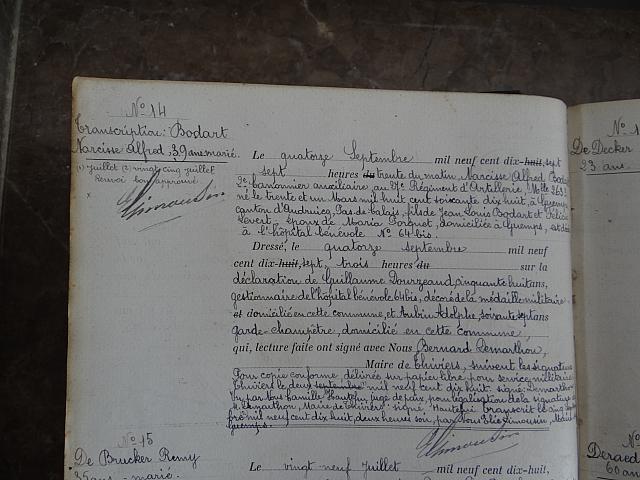 N° 14
Transcription: Bodart
Narcisse Alfred, 39 ans marié.
(1) juillet (2) vingt cinq juillet
Renvoi bon approuvé
x
Limousin
Le quatorze Septembre mil neuf cent dix-huit, sept
sept heures du trente du matin, Narcisse Alfred Bodart
2e canonnier auxiliaire au Régiment d'Artillerie,
né le trente et un Mars mil huit cent soixante dix huit, à Guemps,
canton d'Audruicq, Pas de Calais, fils de Jean Louis Bodart et
Levert, époux de Maria Porquet, domiciliée à Guemps, est décédé
à l'hôpital bénévole N° 64 bis.
Dressé, le quatorze septembre mil neuf
cent dix-huit, sept, trois heures du sur la
déclaration de Guillaume Dourzeaud, cinquante huit ans,
gestionnaire de l'hôpital bénévole 64 bis, décoré de la médaille militaire
et domicilié en cette commune, et Aubin Adolphe, soixante sept ans
garde-champêtre, domicilié en cette commune
qui, lecture faite ont signé avec Nous Bernard Lemarthou,
Maire de Thiviers, suivent les signatures
Pour copie conforme délivrée sur papier libre pour service militaire
Thiviers le deux septembre mil neuf cent dix huit. signé: Lemarthou
Vu par Nous Camille Hautefui, juge de paix, pour légalisation de la signature de
M. Lemarthou, Maire de Thiviers signé Hautefui transcrit le cinq
mil neuf cent dix huit, deux heures soir, par Nous Elie Limousin, Maire
Guemps.
Limousin
N° 15
De Brucker Remy
35 ans - marié.
Le vingt-neuf juillet mil neuf cent dix-huit,
N° 1
De Decker
23 ans
N°
Deraed
60 ans